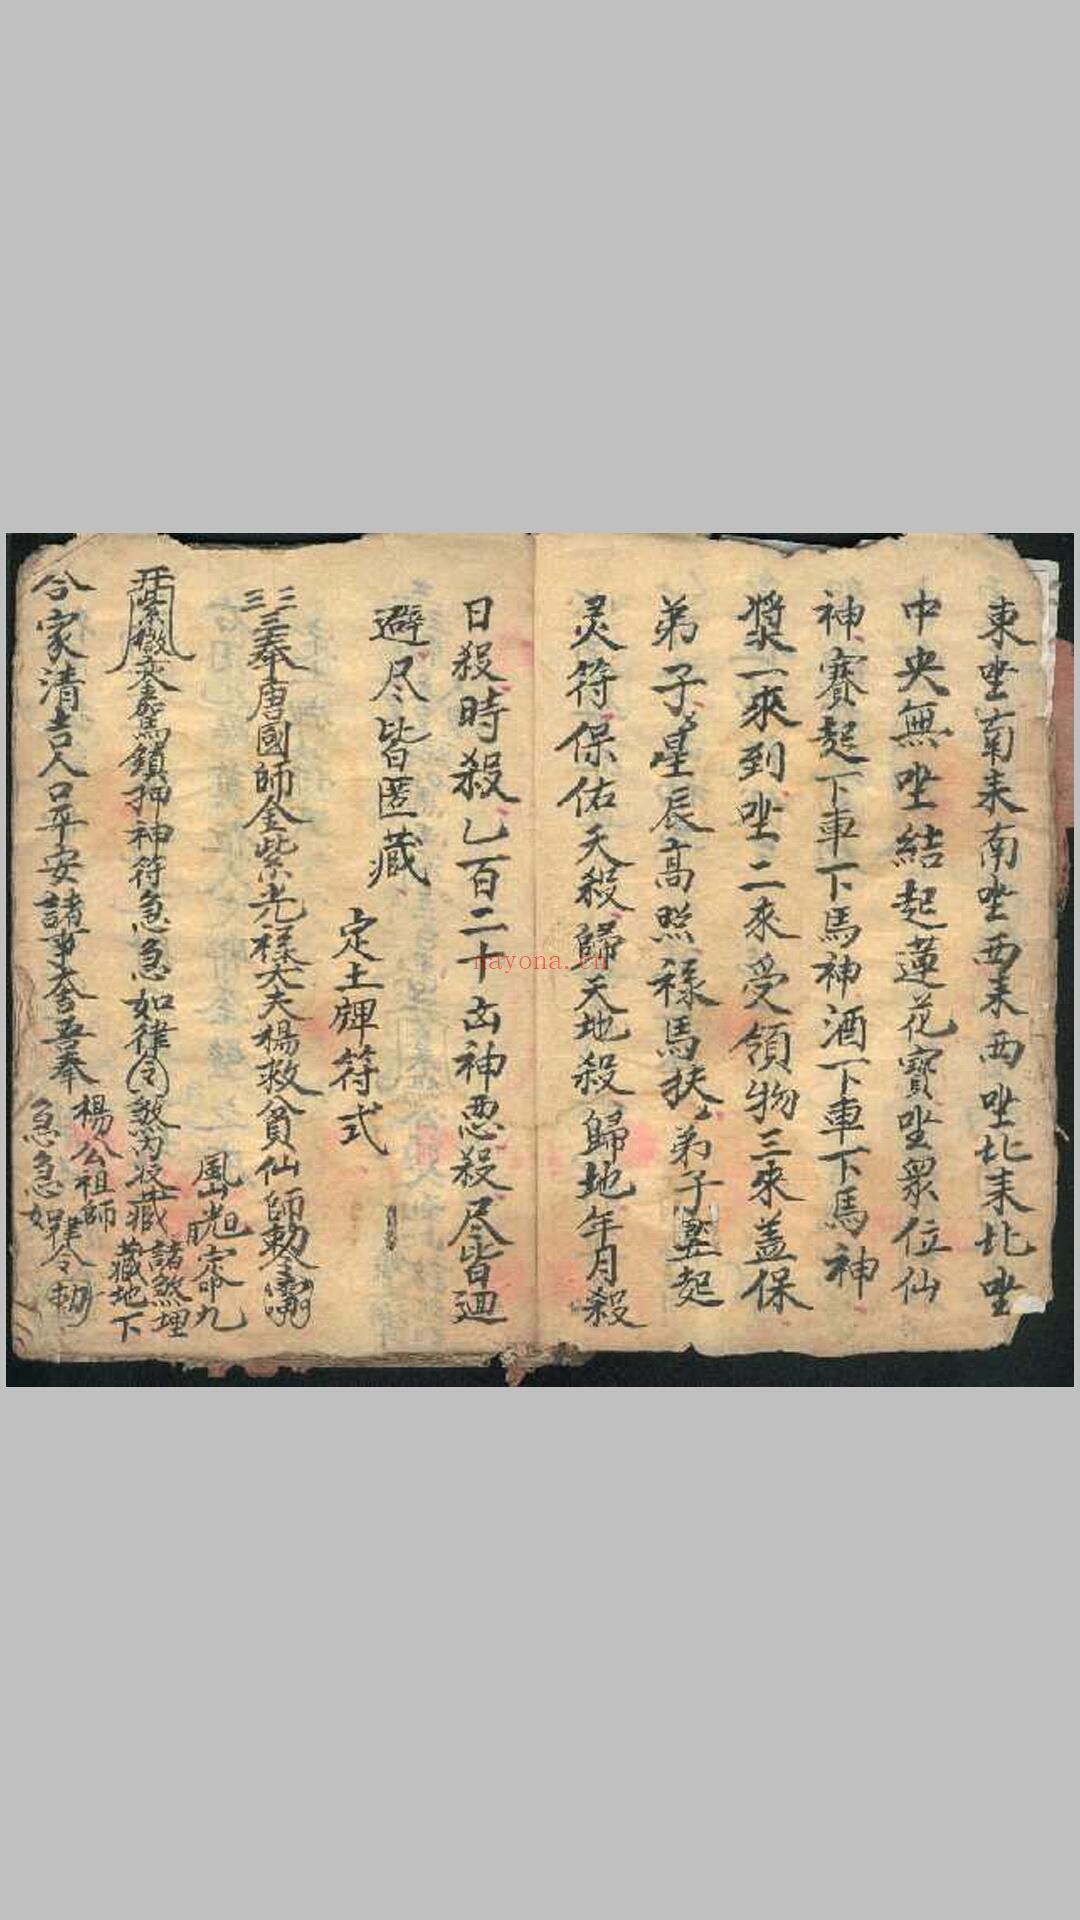 東坐南耒南坐西耒西坐北耒北坐
中央無坐結起蓮花寶坐眾位仙
神賽起下車下馬神酒下車下馬神
漿一來到坐二來受領物三來盖保
弟子星辰高照祿馬扶弟子竪起
灵符保佑天殺歸天地殺歸地年月殺
日殺時殺乙百二十凶神惡殺尽皆廻
避尽皆匿藏
定土牌符式
三三三奉唐國師金紫光祿大夫楊救貧仙師勅令
鎮押神符急急如律令
諸煞埋
藏地下
合家清吉人口平安諸事大吉吾奉
楊公祖師
急急如律令勅
nayona.cn